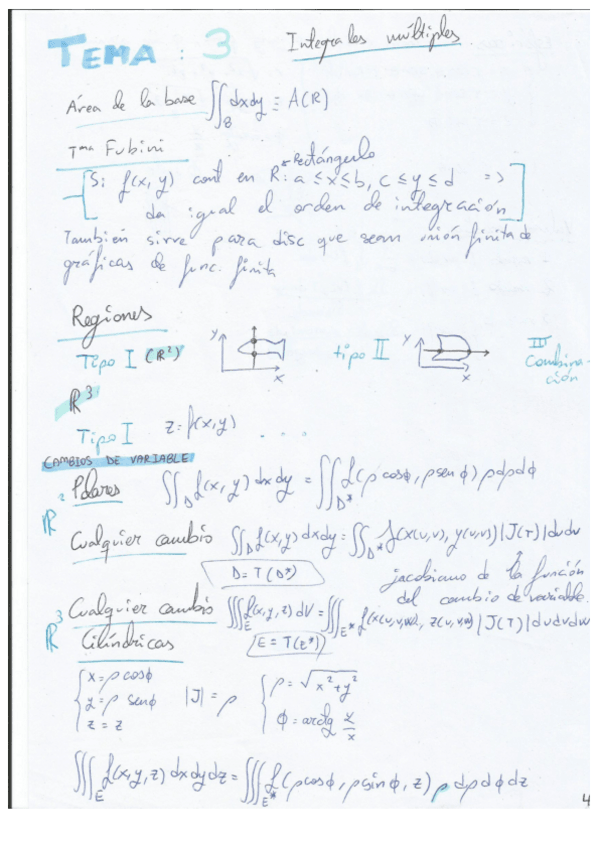 TEMA : 3 Integrales múltiples
Área de la base ∬_B dxdy ≡ A(R)
Tma Fubini
Rectángulo
Si f(x, y) cont en R: a ≤ x ≤ b, c ≤ y ≤ d =>
da igual el orden de integración
También sirve para disc que sean unión finita de
gráficas de func. finita
Regiones
Tipo I (R²) y x tipo II y x III
Combinación
R³
Tipo I z = f(x,y) . . .
CAMBIOS DE VARIABLE
R² Polares ∬_D f(x, y) dxdy = ∬_D* f(ρ cosϕ, ρ sen ϕ) ρ dρ dϕ
Cualquier cambio ∬_D f(x,y) dxdy = ∬_D* f(x(u,v), y(u,v)) |J(T)| dudv
D = T(D*)
jacobiano de la función
del cambio de variable.
R³ Cualquier cambio ∭_E f(x,y,z) dV = ∭_E* f(x(u,v,w), z(u,v,w)) |J(T)| dudvdw
E = T(E*)
Cilíndricas
x = ρ cosϕ
y = ρ senϕ
z = z
|J| = ρ
ρ = √x²+y²
ϕ = arctg y/x
∭_E f(x,y,z) dxdydz = ∭_E* f(ρcosϕ, ρsinϕ, z) ρ dρ dϕ dz
4